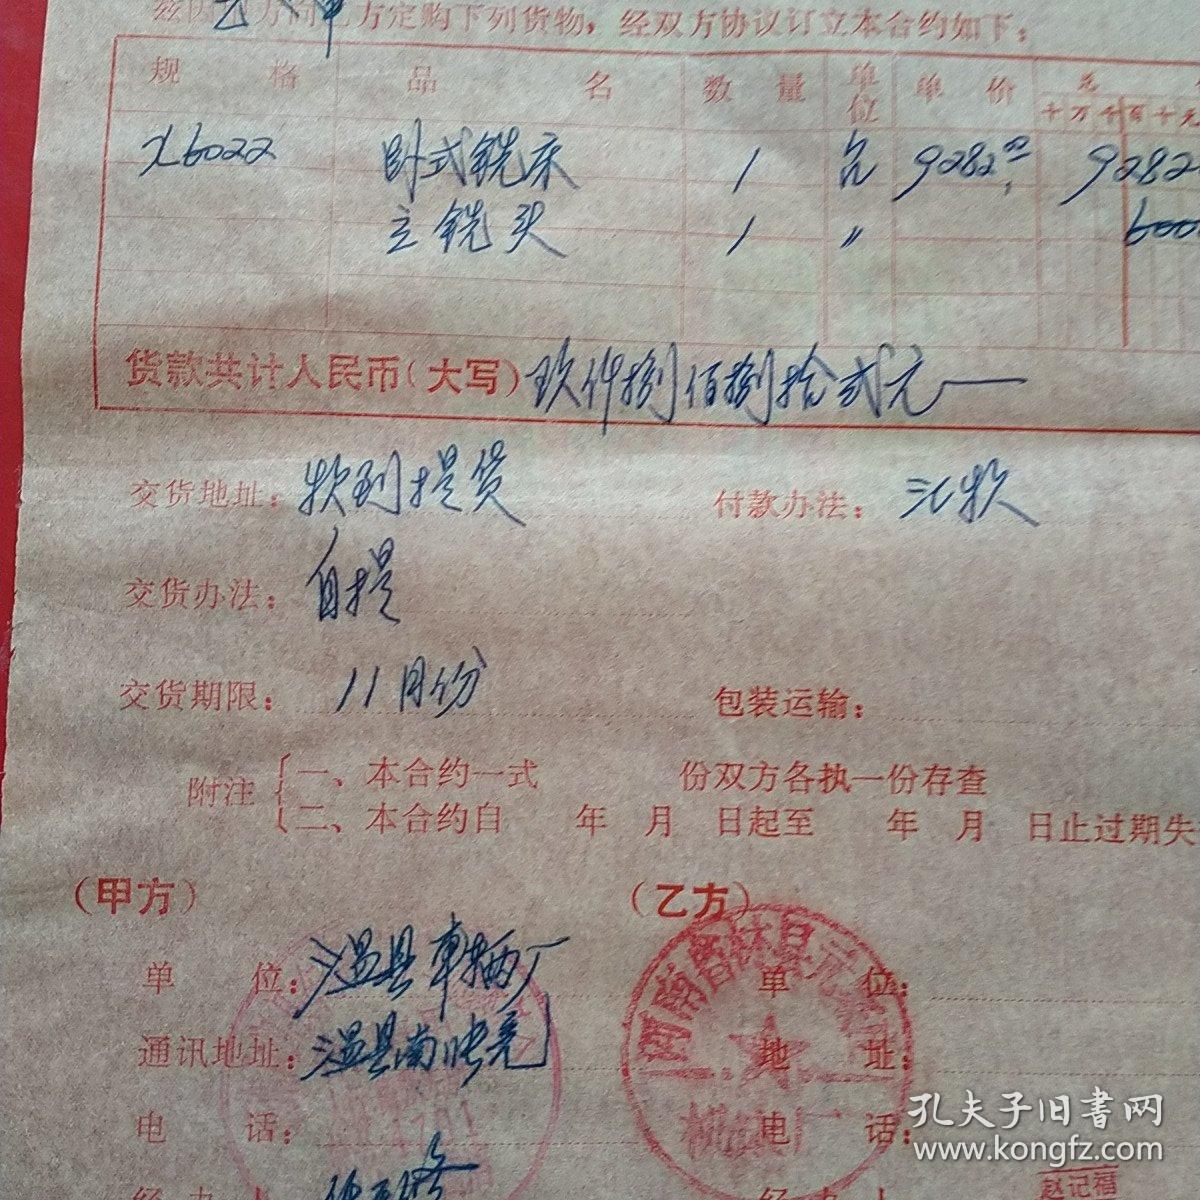 方定购下列货物，经双方协议订立本合约如下：
规 格 品 名 数 量 单位 单 价 总
十万千百十元
X6022 卧式铣床 1 台 9282.00 9282
立铣头 1 〃 600
货款共计人民币(大写) 玖仟捌佰捌拾贰元
交货地址： 款到提货 付款办法： 汇款
交货办法： 自提
交货期限： 11月份 包装运输：
附注 一、本合约一式 份双方各执一份存查
二、本合约自 年 月 日起至 年 月 日止过期失
(甲方) (乙方)
单 位： 温县车辆厂 单 位：
通讯地址： 温县南张羌 地 址：
电 话： 电 话：
经 办 人 经 办 人
赵记福
孔夫子旧书网
www.kongfz.com